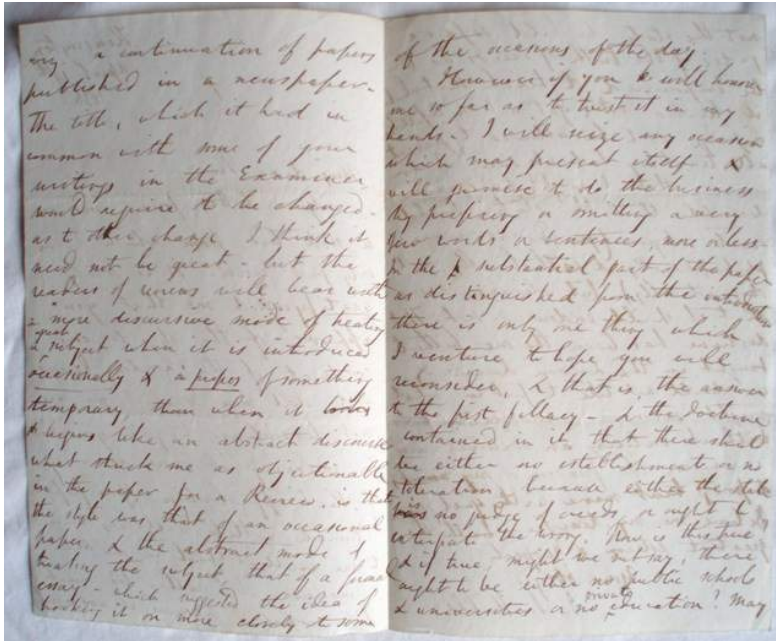 a continuation of papers
published in a newspaper.
The title, which it had in
common with some of your
writings in the Examiner
would require to be changed.
as to other change I think it
need not be great - but the
readers of reviews will bear with
a more discursive mode of treating
a great subject when it is introduced
occasionally & à propos of something
temporary than when it
begins like an abstract discourse
what struck me as objectionable
in the paper for a Review, is that
the style was that of an occasional
paper & the abstract mode of
treating the subject that of a formal
essay - which suggested the idea of
hooking it on more closely to some
of the occasions of the day.
However if you will honour
me so far as to trust it in my
hands - I will seize any occasion
which may present itself &
will promise to do the business
by prefixing or omitting a very
few words or sentences, more or less -
In the substantial part of the paper
as distinguished from the introduction
there is only one thing which
I venture to hope you will
reconsider, & that is the answer
to the first fallacy - & the doctrine
contained in it that there should
be either no establishments or no
toleration because either the state
is no judge of creeds or ought to
extirpate the wrong. Now is this true?
& if true might we not say, there
ought to be either no public schools
& universities or no private education? May